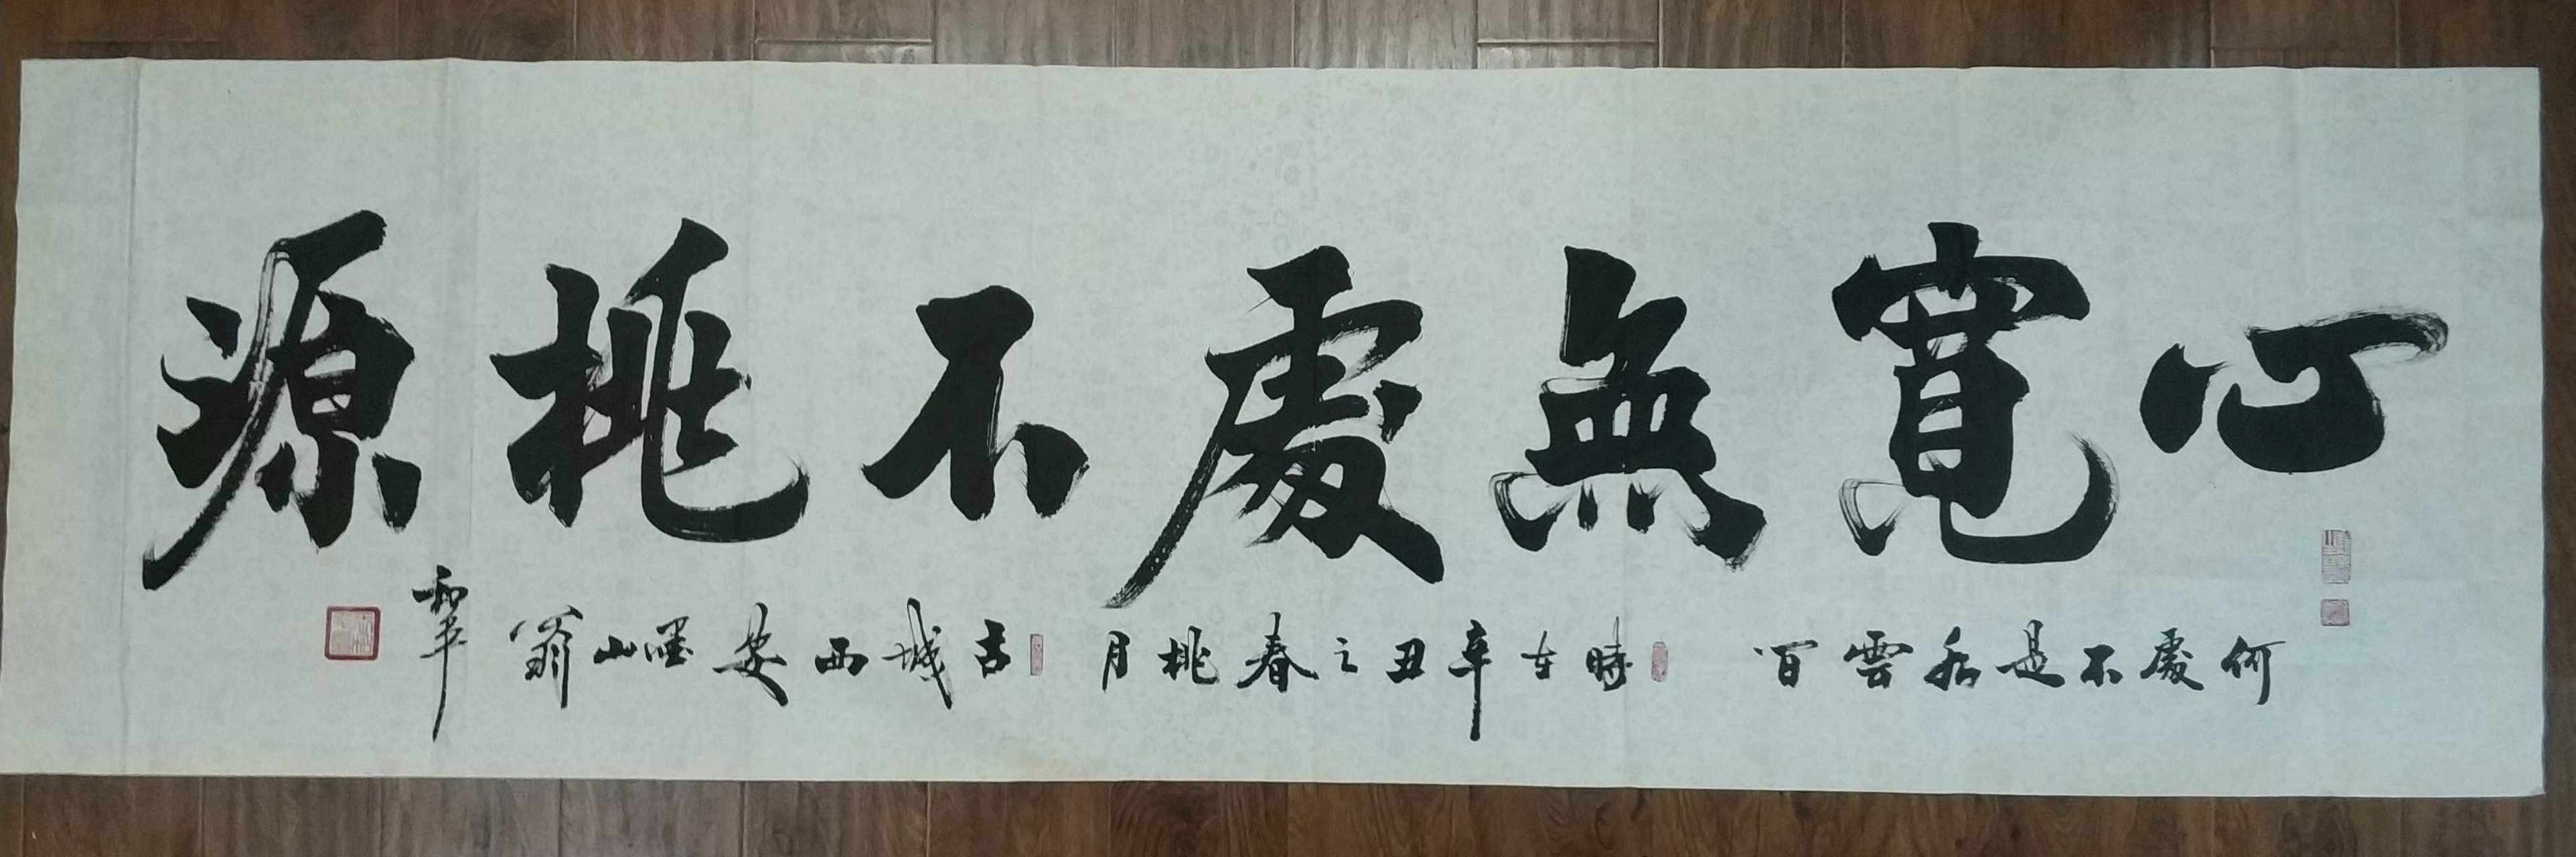 心寬無處不桃源
何處不是招雲百 時在辛丑之春桃月 古城西安墨山翁 和平